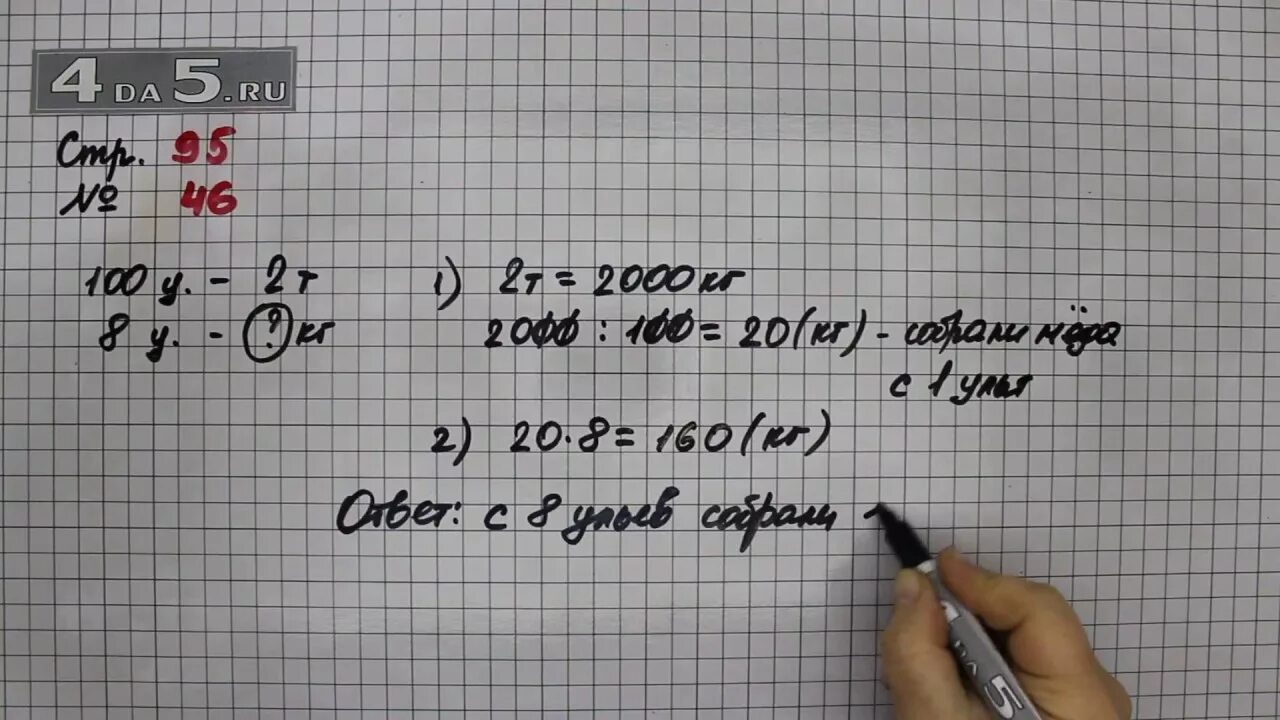 4DA5.RU
Стр. 95
№ 46
100 у. - 2т
8 у. - ? кг
1) 2т = 2000кг
2000 : 100 = 20 (кг) - собрали мёда
с 1 улья
2) 20·8 = 160 (кг)
Ответ: с 8 ульев собрали
DA 5